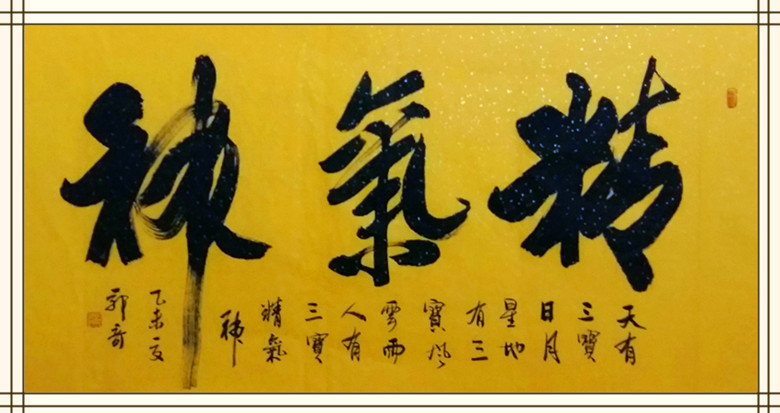 精氣神
天有
三寶
日月
星地
有三
寶風
雲雨
人有
三寶
精氣
神
乙未夏
郭奇